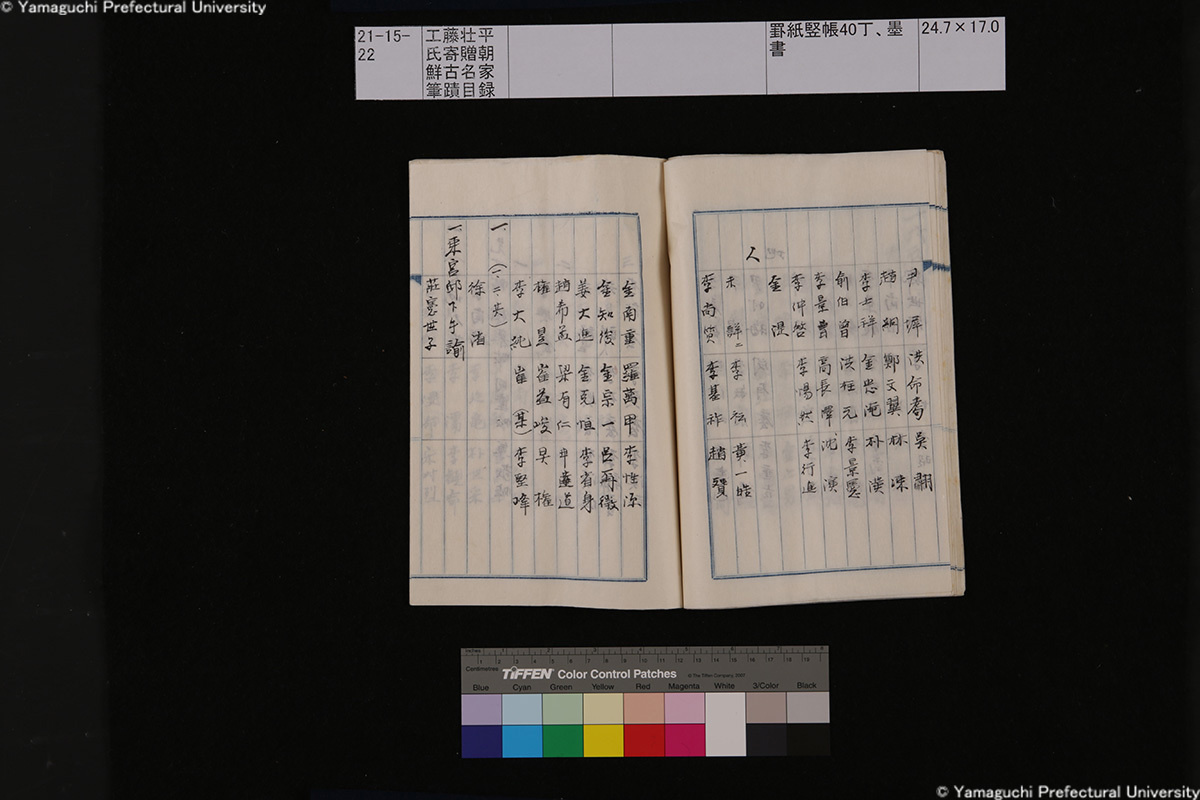 © Yamaguchi Prefectural University
21-15-22
工藤壮平氏寄贈朝鮮古名家筆蹟目録
罫紙竪帳40丁、墨書
24.7×17.0
尹世澤 洪命耈 吳翿
趙絅 鄭文翼 林㙔
李士祥 金忠 朴潢
俞伯曾 洪 元 李景
李景曾 高長 沈演
李仲啓 李陽然 李行進
金湜
人
未詳二 李 黃一皓
李尚質 李基祚 趙贇
金南重 羅萬甲 李性源
金知復 金宗一 呂爾徵
姜大進 金克恒 李省身
趙希孟 梁有仁 辛達道
權昱 崔葕峻 吳權
李大純 崔(某) 李堅峰
一、(一、二共)
徐渻
一、東宮邸下手諭
莊憲世子
Inches
Centimetres
TIFFEN Color Control Patches
© The Tiffen Company, 2007
Blue Cyan Green Yellow Red Magenta White 3/Color Black
© Yamaguchi Prefectural University